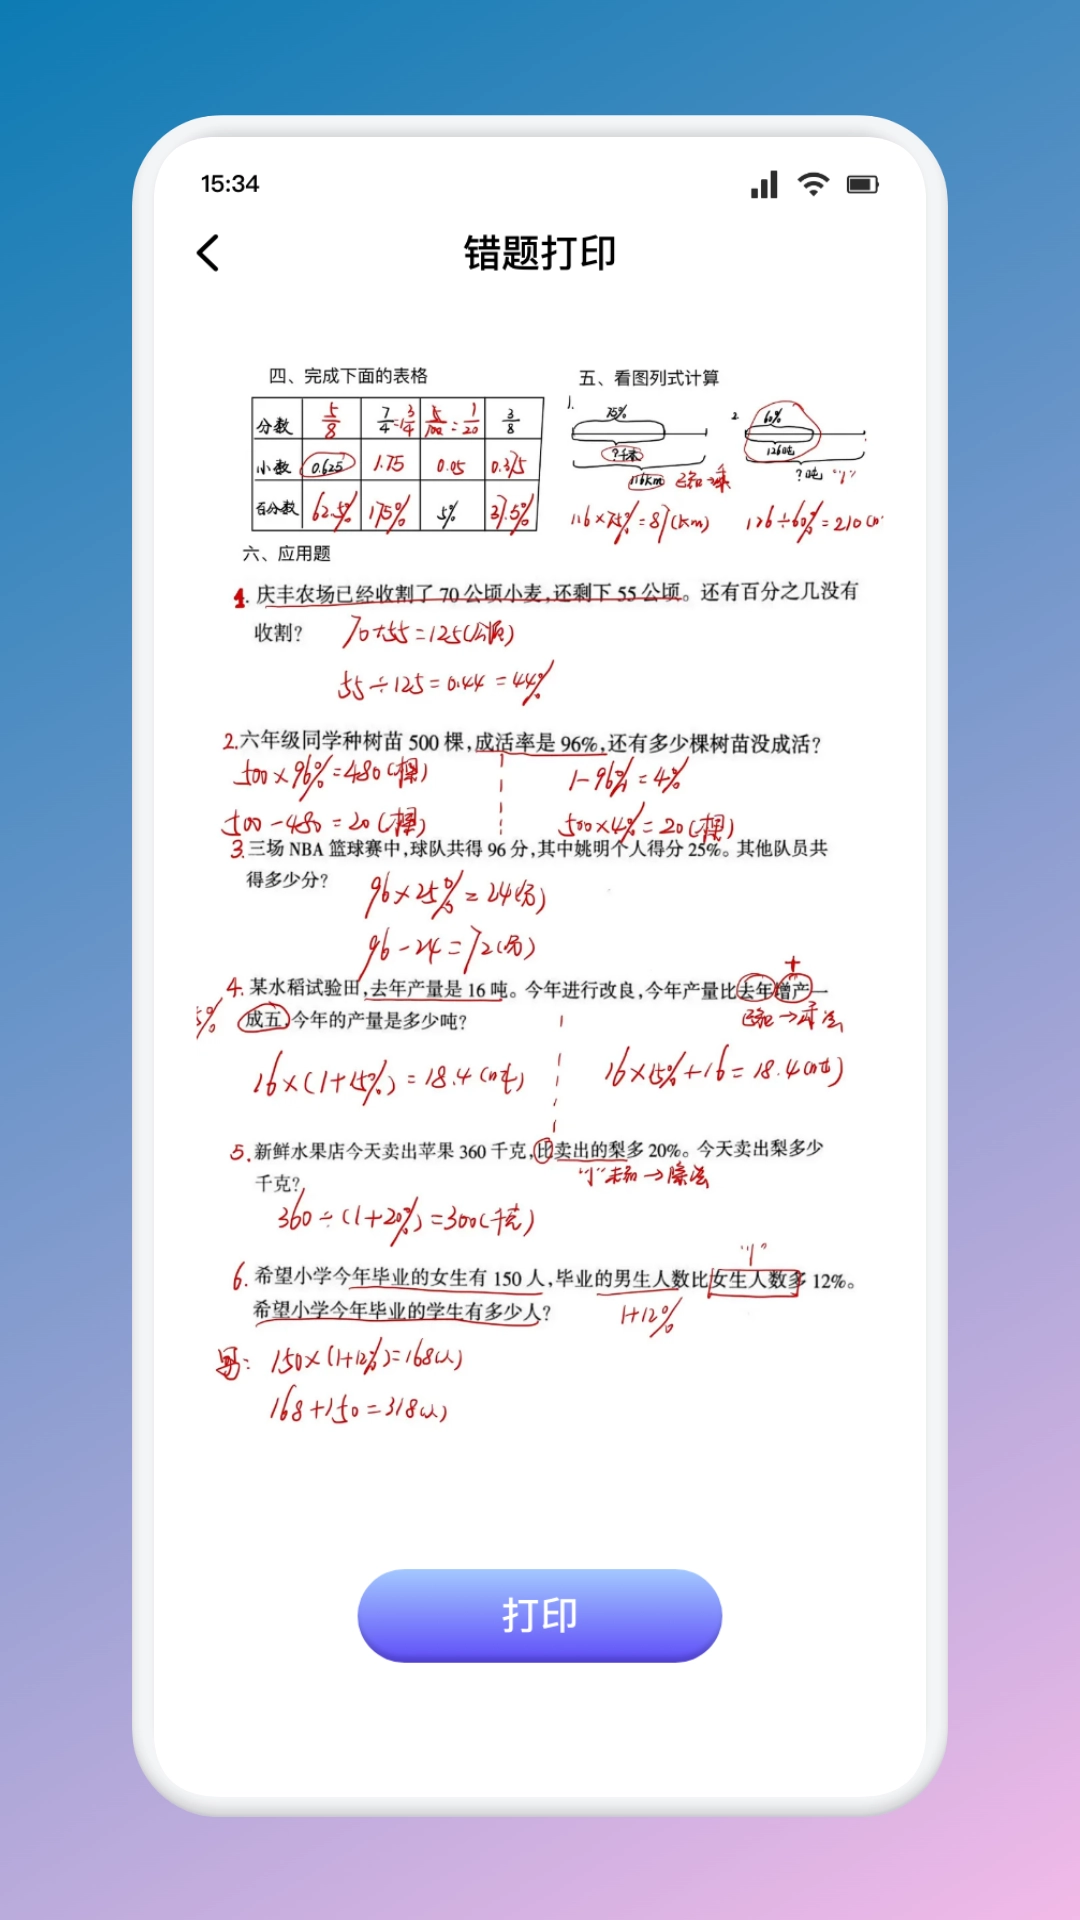 15:34
错题打印
四、完成下面的表格
五、看图列式计算
分数 5/8 7/4=1 3/4 5/100=1/20 3/8
小数 0.625 1.75 0.05 0.375
百分数 62.5% 175% 5% 37.5%
1. 75%
?千米
116km 已知→乘
116×75%=87(km)
2. 60%
126吨
?吨 "1"
126÷60%=210(
六、应用题
1. 庆丰农场已经收割了 70 公顷小麦,还剩下 55 公顷。还有百分之几没有
收割?
70+55=125(公顷)
55÷125=0.44=44%
2.六年级同学种树苗 500 棵,成活率是 96%,还有多少棵树苗没成活?
500×96%=480(棵) 1-96%=4%
500-480=20(棵) 500×4%=20(棵)
3.三场 NBA 篮球赛中,球队共得 96 分,其中姚明个人得分 25%。其他队员共
得多少分?
96×25%=24(分)
96-24=72(分)
+
4.某水稻试验田,去年产量是 16 吨。今年进行改良,今年产量比去年增产一
5% 成五,今年的产量是多少吨?
已知→乘法
16×(1+15%)=18.4(吨) 16×15%+16=18.4(吨)
5.新鲜水果店今天卖出苹果 360 千克,比卖出的梨多 20%。今天卖出梨多少
千克?
"1"未知→除法
360÷(1+20%)=300(千克)
"1"
6.希望小学今年毕业的女生有 150 人,毕业的男生人数比女生人数多 12%。
希望小学今年毕业的学生有多少人?
1+12%
男: 150×(1+12%)=168(人)
168+150=318(人)
打印